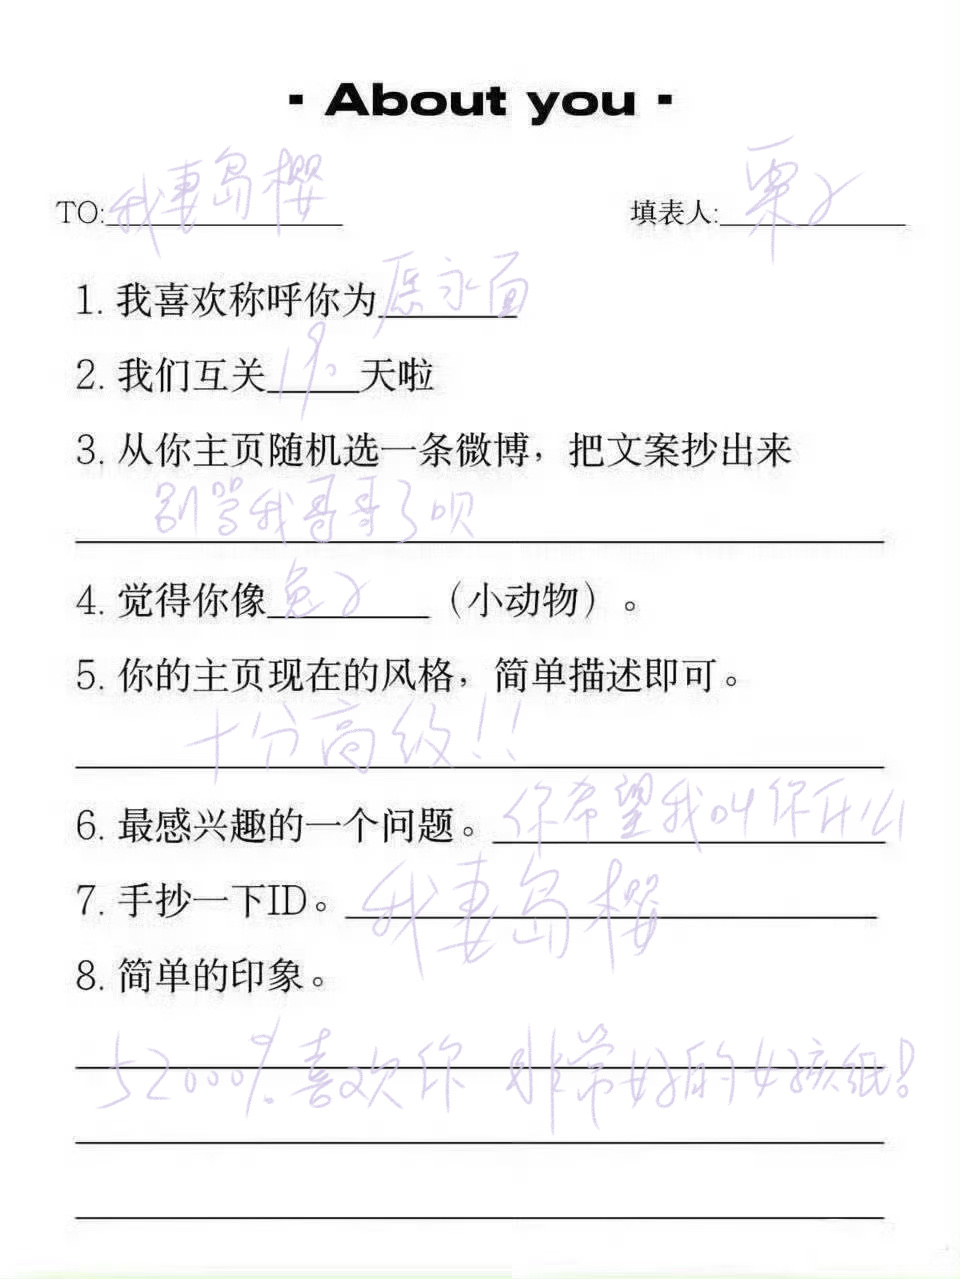 - About you -
TO: 我妻岛樱 填表人: 栗子
1. 我喜欢称呼你为 永面
2. 我们互关 19. 天啦
3. 从你主页随机选一条微博，把文案抄出来
别骂我哥哥了呗
4. 觉得你像兔子（小动物）。
5. 你的主页现在的风格，简单描述即可。
十分高级!!
6. 最感兴趣的一个问题。你希望我叫你什么
7. 手抄一下ID。我妻岛樱
8. 简单的印象。
52000%喜欢你 非常好的女孩纸!